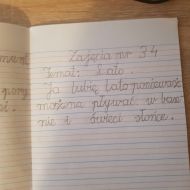 Zajęcia nr 34
Temat: Lato.
Ja lubię lato ponieważ
można pływać w base
nie i świeci słońce.